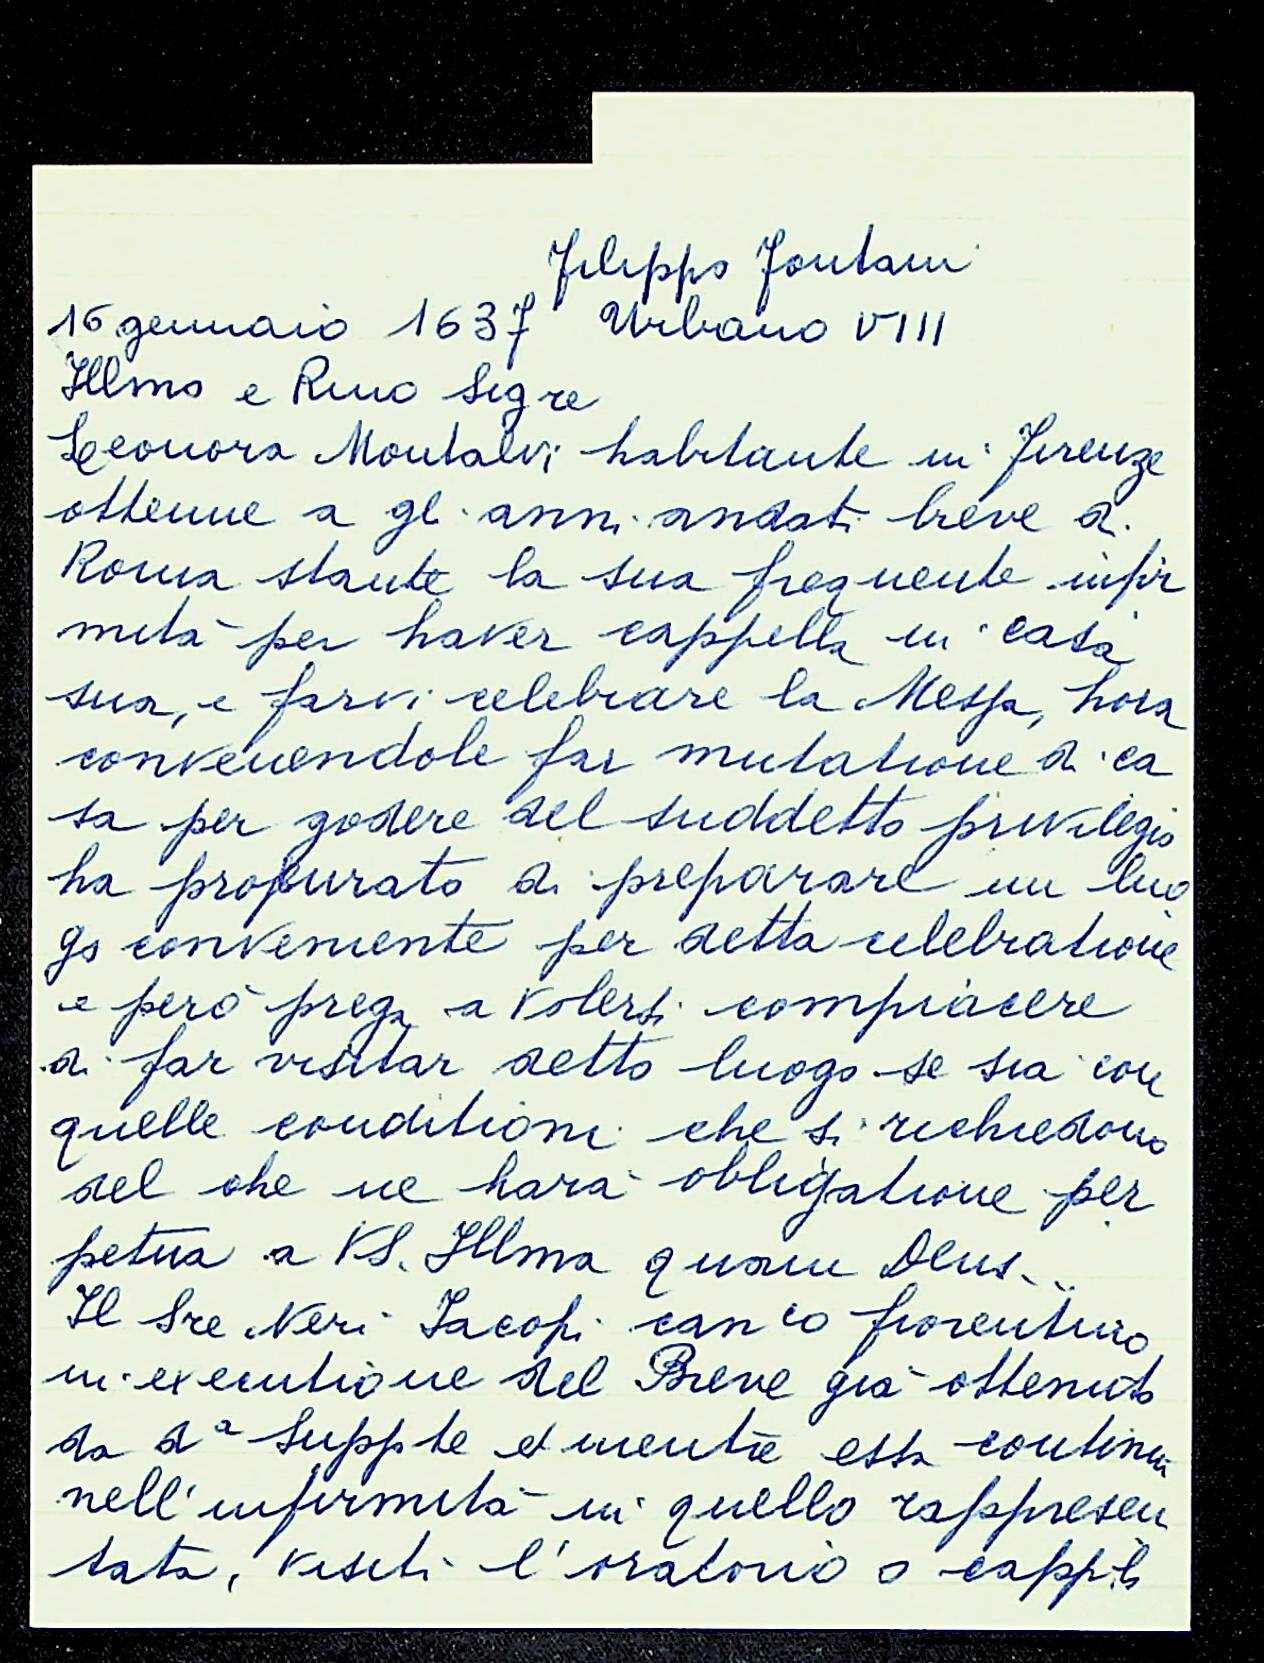 Filippo Fontani
16 gennaio 1637 Urbano VIII
Illmo e Rmo Sigre
Leonora Montalvi habitante in Firenze
ottenne a gli anni andati breve di
Roma stante la sua frequente infir
mità per haver cappella in casa
sua, e farvi celebrare la Messa, hora
convenendole far mutatione di ca
sa per godere del suddetto privilegio
ha procurato di preparare un luo
go conveniente per detta celebratione
e però prega a volersi compiacere
di far visitar detto luogo se sia con
quelle conditioni che si richiedono
del che ne harà obbligatione per
petua a VS. Illma quam Deus...
Il Sre Neri Jacopi canco fiorentino
in executione del Breve già ottenuto
da da Suppte et mentre essa continui
nell'infirmità in quello rappresen
tata, visiti l'oratorio o cappla